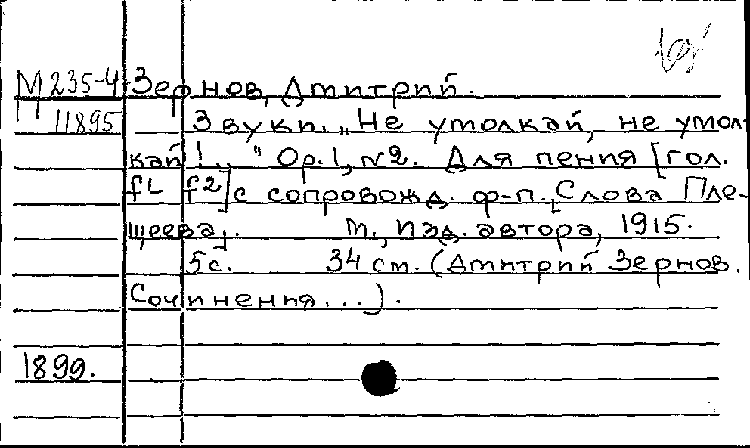 М 235-4 Зернов, Дмитрий.
11895 Звуки. „Не умолкай, не умол-
кай!.." Op.1, №2. Для пения [гол.
f1 f2] с сопровожд. ф-п. [Слова Пле-
щеева]. М., Изд. автора, 1915.
5с. 34 см. (Дмитрий Зернов.
Сочинения...).
1899.